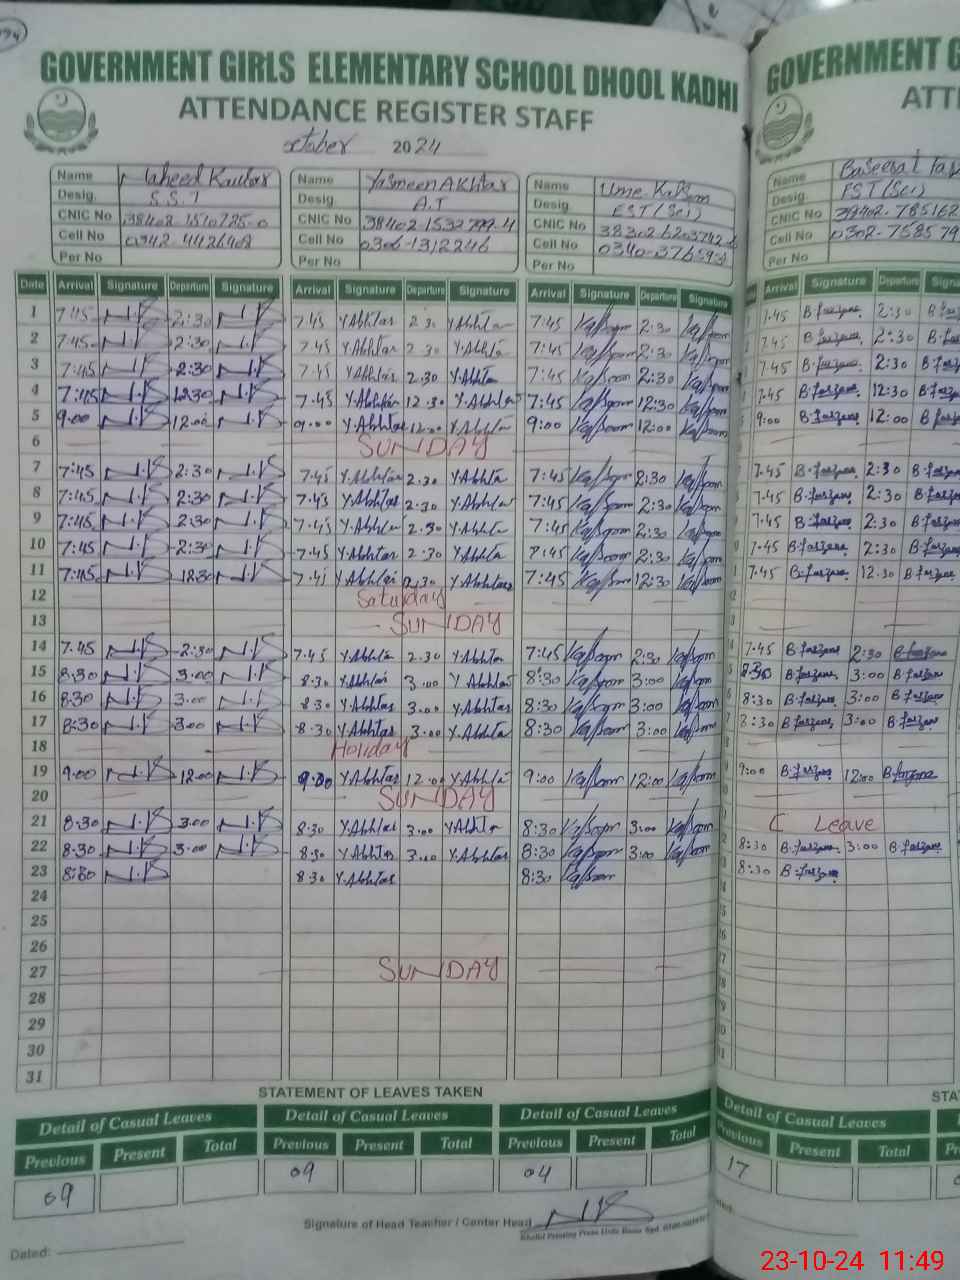 GOVERNMENT GIRLS ELEMENTARY SCHOOL DHOOL KADHI
ATTENDANCE REGISTER STAFF
october 2024
Name Naheed Kausar
Desig. S.S.T
CNIC No
Cell No
Per No
Name Yasmeen Akhtar
Desig. A.T
CNIC No
Cell No
Per No
Name Ume Kalsoom
Desig. EST (Sci)
CNIC No
Cell No
Per No
Date Arrival Signature Departure Signature Arrival Signature Departure Signature Arrival Signature Departure Signature
1 7:45 N.K 2:30 N.K 7.45 Y.Akhtar 2.30 Y.Akhtar 7:45 Kalsoom 2:30 Kalsoom
2 7:45 N.K 2:30 N.K 7.45 Y.Akhtar 2.30 Y.Akhtar 7:45 Kalsoom 2:30 Kalsoom
3 7:45 N.K 2:30 N.K 7.45 Y.Akhtar 2.30 Y.Akhtar 7:45 Kalsoom 2:30 Kalsoom
4 7:45 N.K 12:30 N.K 7.45 Y.Akhtar 12.30 Y.Akhtar 7:45 Kalsoom 12:30 Kalsoom
5 9.00 N.K 12:00 N.K 9.00 Y.Akhtar 12.00 Y.Akhtar 9:00 Kalsoom 12:00 Kalsoom
6 SUNDAY
7 7:45 N.K 2:30 N.K 7.45 Y.Akhtar 2.30 Y.Akhtar 7:45 Kalsoom 2:30 Kalsoom
8 7:45 N.K 2:30 N.K 7.45 Y.Akhtar 2.30 Y.Akhtar 7:45 Kalsoom 2:30 Kalsoom
9 7:45 N.K 2:30 N.K 7.45 Y.Akhtar 2.30 Y.Akhtar 7:45 Kalsoom 2:30 Kalsoom
10 7:45 N.K 2:30 N.K 7.45 Y.Akhtar 2.30 Y.Akhtar 7:45 Kalsoom 2:30 Kalsoom
11 7:45 N.K 12:30 N.K 7.45 Y.Akhtar Y.Akhtar 7:45 Kalsoom 12:30 Kalsoom
12 Saturday
13 SUNDAY
14 7.45 N.K 2:30 N.K 7.45 Y.Akhtar 2.30 Y.Akhtar 7:45 Kalsoom 2:30 Kalsoom
15 8:30 N.K 3:00 N.K 8.30 Y.Akhtar 3.00 Y.Akhtar 8:30 Kalsoom 3:00 Kalsoom
16 8:30 N.K 3:00 N.K 8.30 Y.Akhtar 3.00 Y.Akhtar 8:30 Kalsoom 3:00 Kalsoom
17 8:30 N.K 3:00 N.K 8.30 Y.Akhtar 3.00 Y.Akhtar 8:30 Kalsoom 3:00 Kalsoom
18 Holiday
19 9:00 N.K 12:00 N.K 9.00 Y.Akhtar 12.00 Y.Akhtar 9:00 Kalsoom 12:00 Kalsoom
20 SUNDAY
21 8:30 N.K 3:00 N.K 8.30 Y.Akhtar 3.00 Y.Akhtar 8:30 Kalsoom 3:00 Kalsoom
22 8:30 N.K 3:00 N.K 8.30 Y.Akhtar 3.00 Y.Akhtar 8:30 Kalsoom 3:00 Kalsoom
23 8:30 N.K 8.30 Y.Akhtar 8:30 Kalsoom
24
25
26
27 SUNDAY
28
29
30
31
STATEMENT OF LEAVES TAKEN
Detail of Casual Leaves Detail of Casual Leaves Detail of Casual Leaves
Previous Present Total Previous Present Total Previous Present Total
09 09 04
Signature of Head Teacher / Center Head N.K
Dated:
GOVERNMENT G
ATTE
Name
Desig. EST (Sci)
CNIC No
Cell No
Per No
Arrival Signature Departure
7.45 B.farzana 2:30
7.45 B.farzana 2:30
7.45 B.farzana 2:30
7.45 B.farzana 12:30
9:00 B.farzana 12:00
7.45 B.farzana 2:30
7.45 B.farzana 2:30
7.45 B.farzana 2:30
7.45 B.farzana 2:30
7.45 B.farzana 12.30 B.farzana
7.45 B.farzana 2:30 B.farzana
8:30 B.farzana 3:00 B.farzana
8:30 B.farzana 3:00 B.farzana
8:30 B.farzana 3:00 B.farzana
9:00 B.farzana 12:00 B.farzana
C Leave
8:30 B.farzana 3:00 B.farzana
8:30 B.farzana
Detail of Casual Leaves
Previous Present Total
17
23-10-24 11:49